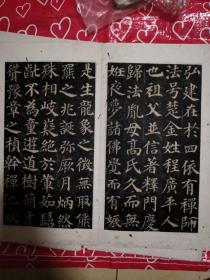 弘建在於四依有禪師
法号楚金姓程廣平人
也祖父並信著釋門慶
歸法胤母高氏久而無
妊夜夢諸佛覺而有娠
是生龍象之徵無取熊
羆之兆誕弥厥月炳然
殊相岐嶷絕於葷茹髫
齔不為童遊道樹萌牙
聳豫章之楨幹禪池畎